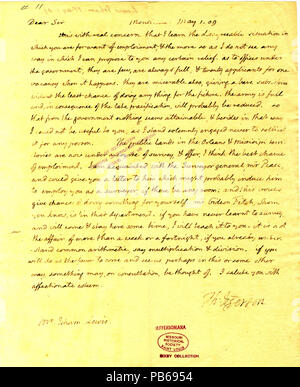 Dear Sir Monticello May 1. 09
It is with real concern that I learn the disagreeable situation in
which you are for want of employment & the more so as I do not see any
way in which I can propose to you any certain relief. as to offices under
the government, they are few, are always full, & twenty applicants for one
vacancy when it happens. they are miserable also, giving a bare subsistence
without the least chance of doing any thing for the future. the army is full
and, in consequence of the late pacification, will probably be reduced. so
that from the government nothing seems attainable & besides in that way
I could not be useful to you, as I stand solemnly engaged never to solicit
it for any person. The public lands in the Orleans & Missisipi territories
are now under a course of survey, & offer, I think the best chance
of employment. I am acquainted with the Surveyor general mr Pease,
and could give you a letter to him which might probably induce him
to employ you as a surveyor, if there be any room; and this would
give chances of doing something for yourself. mr Gideon Fitch, whom
you know, is in that department. if you have never learnt to survey,
and will come & stay here some time, I will teach it to you. it is not
the affair of more than a week or a fortnight, if you already understand
common arithmetic, say multiplication & division. if you
will do us the favor to come and see us, perhaps in this or some other
way something may, on consultation, be thought of. I salute you with
affectionate esteem.
Th: Jefferson
Mr. Isham Lewis
JEFFERSONIANA
MISSOURI
HISTORICAL
SOCIETY
SAINT LOUIS
BIXBY COLLECTION
alamy
Image ID: PB6954
www.alamy.com